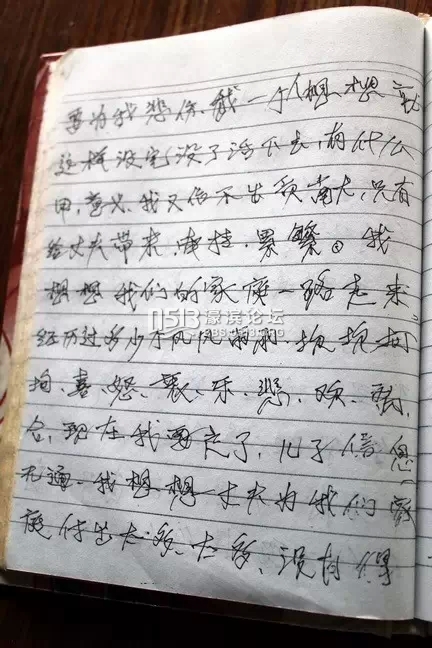 要为我悲伤.我一个人想想
这样没完没了活下去,有什么
用,意义.我又 不出 只有
给丈夫带来. 累 。我
想想我们的家庭一路走来
0513 濠滨论坛
经历过多少个风风雨雨.坎坎坷
坷.喜.怒.哀.乐.悲.欢.离.
合.现在我要走了,儿子信息
不通.我想想丈夫为我们家
庭付出太多.太多.没有得